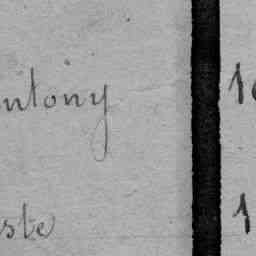 ntony 1
ste 1